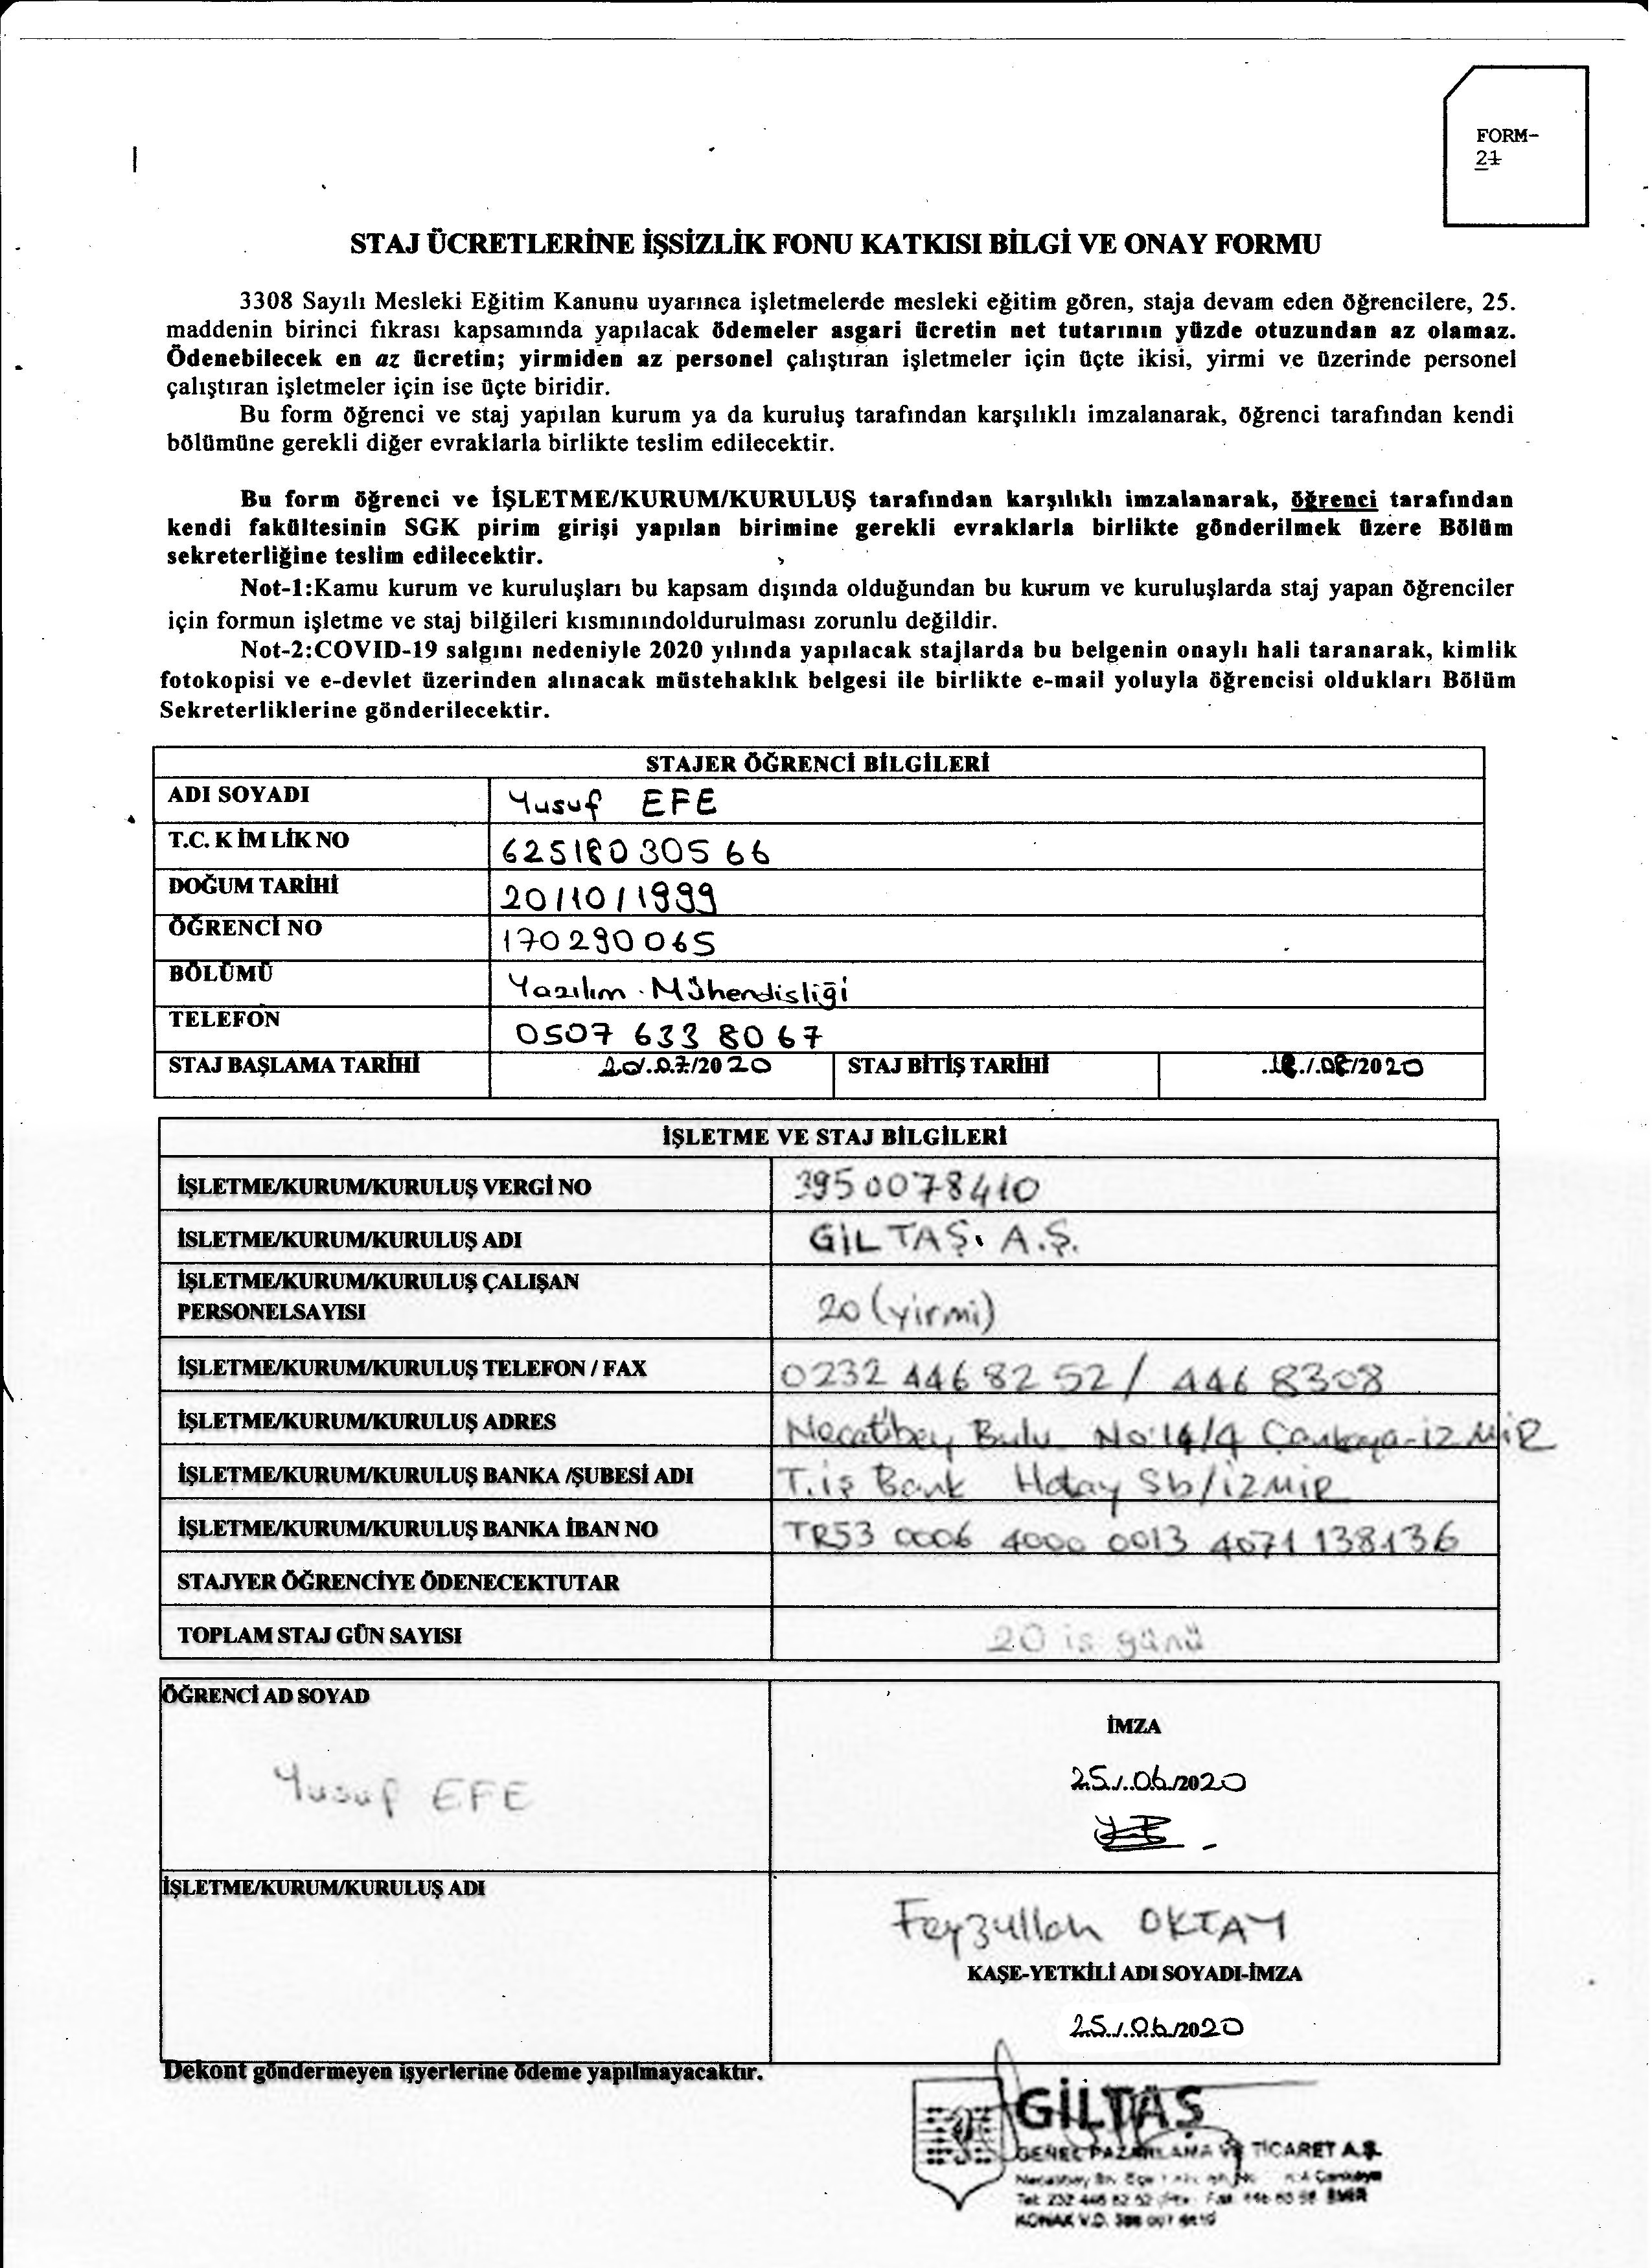 FORM-
21
STAJ ÜCRETLERİNE İŞSİZLİK FONU KATKISI BİLGİ VE ONAY FORMU
3308 Sayılı Mesleki Eğitim Kanunu uyarınca işletmelerde mesleki eğitim gören, staja devam eden öğrencilere, 25.
maddenin birinci fıkrası kapsamında yapılacak ödemeler asgari ücretin net tutarının yüzde otuzundan az olamaz.
Ödenebilecek en az ücretin; yirmiden az personel çalıştıran işletmeler için üçte ikisi, yirmi ve üzerinde personel
çalıştıran işletmeler için ise üçte biridir.
Bu form öğrenci ve staj yapılan kurum ya da kuruluş tarafından karşılıklı imzalanarak, öğrenci tarafından kendi
bölümüne gerekli diğer evraklarla birlikte teslim edilecektir.
Bu form öğrenci ve İŞLETME/KURUM/KURULUŞ tarafından karşılıklı imzalanarak, öğrenci tarafından
kendi fakültesinin SGK pirim girişi yapılan birimine gerekli evraklarla birlikte gönderilmek üzere Bölüm
sekreterliğine teslim edilecektir.
Not-1:Kamu kurum ve kuruluşları bu kapsam dışında olduğundan bu kurum ve kuruluşlarda staj yapan öğrenciler
için formun işletme ve staj bilğileri kısmınındoldurulması zorunlu değildir.
Not-2:COVID-19 salgını nedeniyle 2020 yılında yapılacak stajlarda bu belgenin onaylı hali taranarak, kimlik
fotokopisi ve e-devlet üzerinden alınacak müstehaklık belgesi ile birlikte e-mail yoluyla öğrencisi oldukları Bölüm
Sekreterliklerine gönderilecektir.
STAJER ÖĞRENCİ BİLGİLERİ
ADI SOYADI Yusuf EFE
T.C. KİMLİK NO 62518030566
DOĞUM TARİHİ 20/10/1999
ÖĞRENCİ NO 170290065
BÖLÜMÜ Yazılım Mühendisliği
TELEFON 0507 633 8067
STAJ BAŞLAMA TARİHİ 20/.07/2020 STAJ BİTİŞ TARİHİ .18./.08/2020
İŞLETME VE STAJ BİLGİLERİ
İŞLETME/KURUM/KURULUŞ VERGİ NO 3950078410
İSLETME/KURUM/KURULUŞ ADI GİLTAŞ. A.Ş.
İŞLETME/KURUM/KURULUŞ ÇALIŞAN
PERSONELSAYISI 20 (yirmi)
İŞLETME/KURUM/KURULUŞ TELEFON / FAX 0232 446 82 52 / 446 8308
İŞLETME/KURUM/KURULUŞ ADRES Necatibey Bulv. No:14/4 Çankaya-İZMİR
İŞLETME/KURUM/KURULUŞ BANKA /ŞUBESİ ADI T.iş Bank Hatay Sb/İZMİR
İŞLETME/KURUM/KURULUŞ BANKA İBAN NO TR53 0006 4000 0013 4071 138136
STAJYER ÖĞRENCİYE ÖDENECEKTUTAR
TOPLAM STAJ GÜN SAYISI 20 iş günü
ÖĞRENCİ AD SOYAD
İMZA
Yusuf EFE
25./..06./2020
İŞLETME/KURUM/KURULUŞ ADI
Feyzullah OKTAY
KAŞE-YETKİLİ ADI SOYADI-İMZA
25./.06./2020
Dekont göndermeyen işyerlerine ödeme yapılmayacaktır.
GİLTAŞ
GENEL PAZARLAMA VE TİCARET A.Ş.
Necatibey Çankaya
Tel: 232 446 82 52 İZMİR
KONAK V.D.